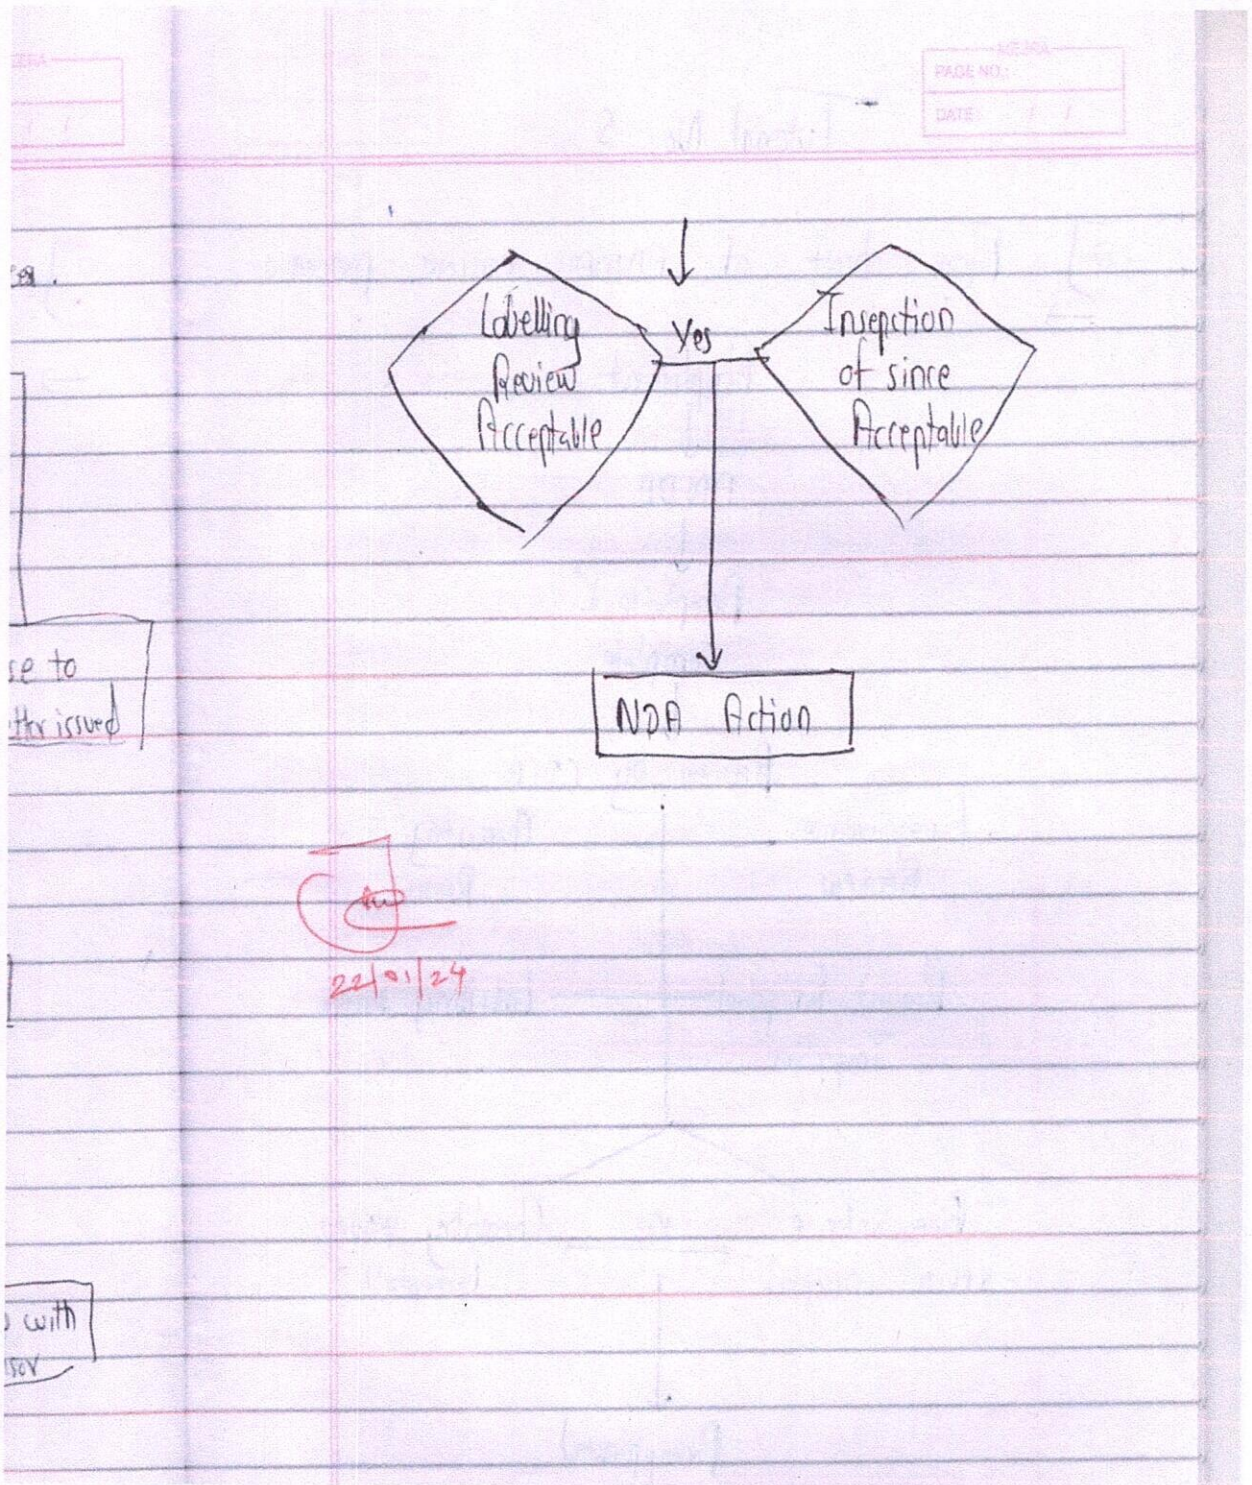 PAGE NO.:
DATE / /
Labelling
Review
Acceptable
Yes
Insepction
of since
Acceptable
NDA Action
22/01/24
se to
etter issued
with
sor